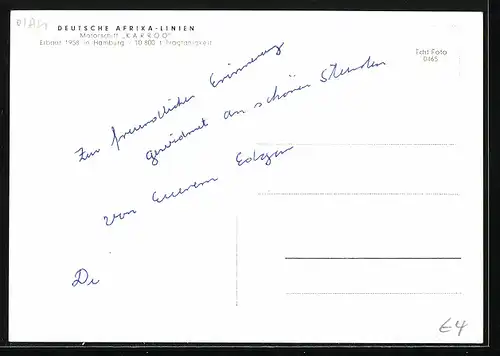 DIAG
DEUTSCHE AFRIKA-LINIEN
Motorschiff „KARROO"
Erbaut 1958 in Hamburg - 10 800 t Tragfähigkeit
Echt Foto
D165
Zur freundlichen Erinnerung
gewidmet an schöne Stunden
von Eurem
De
€4